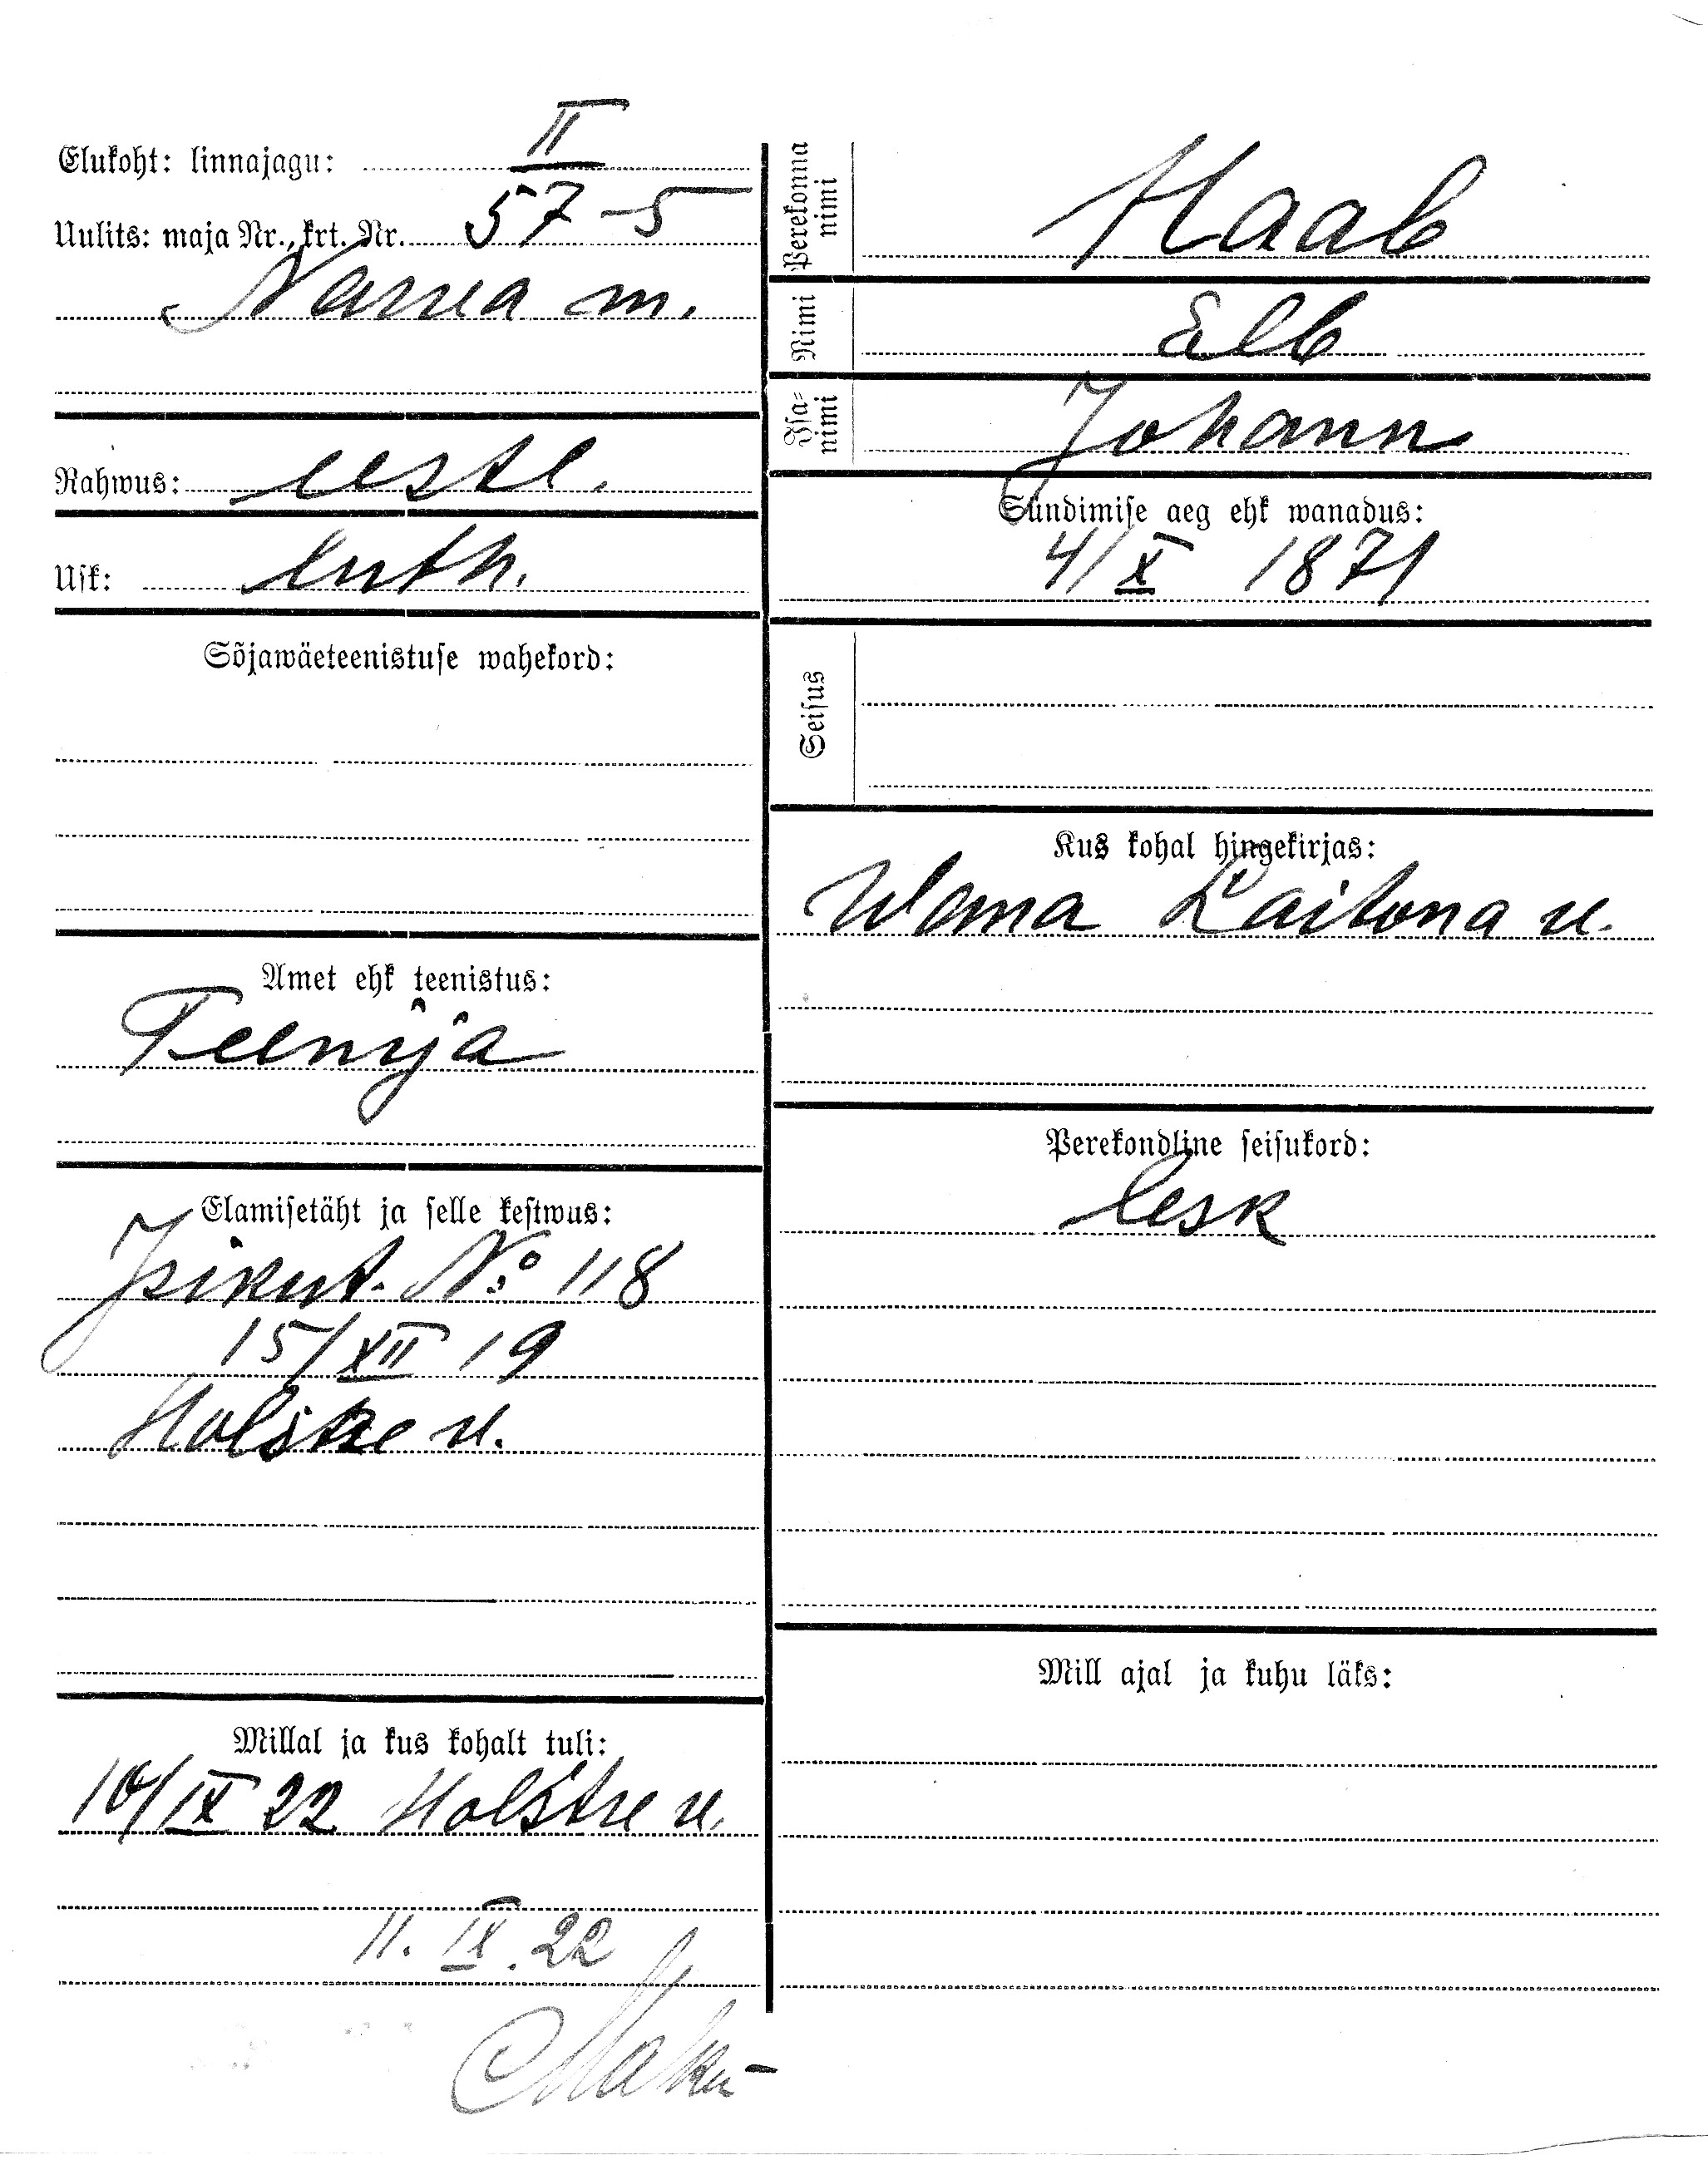 Elukoht: linnajagu: II
Uulits: maja Nr., krt. Nr. 57-5
Narva m.
Rahwus: eestl.
Usk: luth.
Sõjawäeteenistuse wahekord:
Amet ehk teenistus:
Teenija
Elamisetäht ja selle kestwus:
Isikut. No: 118
15/XII 19
Holstre v.
Millal ja kus kohalt tuli:
10/IX 22 Holstre v.
11. IX. 22
Perekonna nimi Haab
Nimi Ell
Isa-nimi Johann
Sündimise aeg ehk wanadus:
4/X 1871
Seisus
Kus kohal hingekirjas:
Wana Laitsna v.
Perekondline seisukord:
lesk
Mill ajal ja kuhu läks: